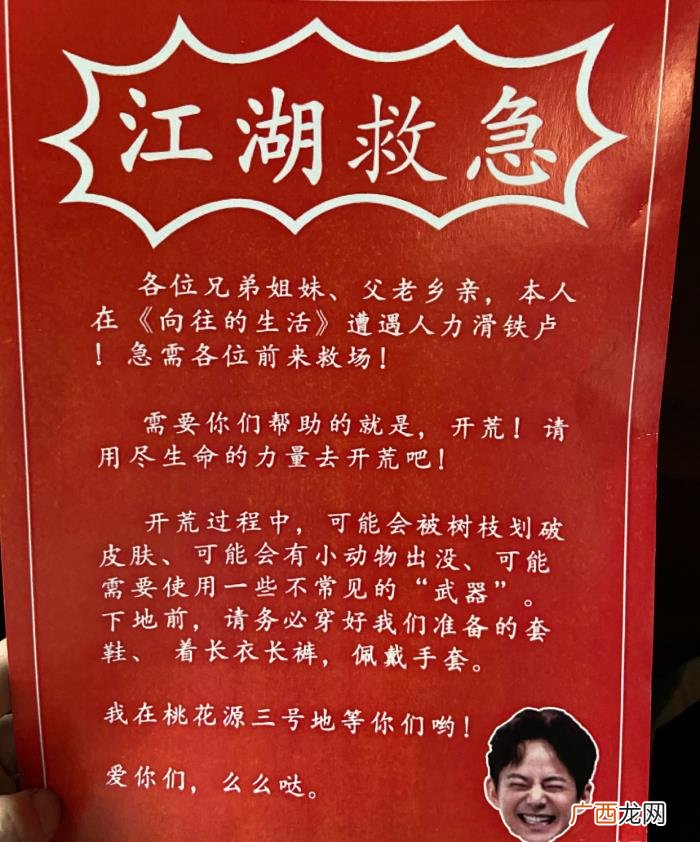 江湖救急
各位兄弟姐妹、父老乡亲，本人
在《向往的生活》遭遇人力滑铁卢
！急需各位前来救场！
需要你们帮助的就是，开荒！请
用尽生命的力量去开荒吧！
开荒过程中，可能会被树枝划破
皮肤、可能会有小动物出没、可能
需要使用一些不常见的“武器”。
下地前，请务必穿好我们准备的套
鞋、着长衣长裤，佩戴手套。
我在桃花源三号地等你们哟！
爱你们，么么哒。
广西龙网